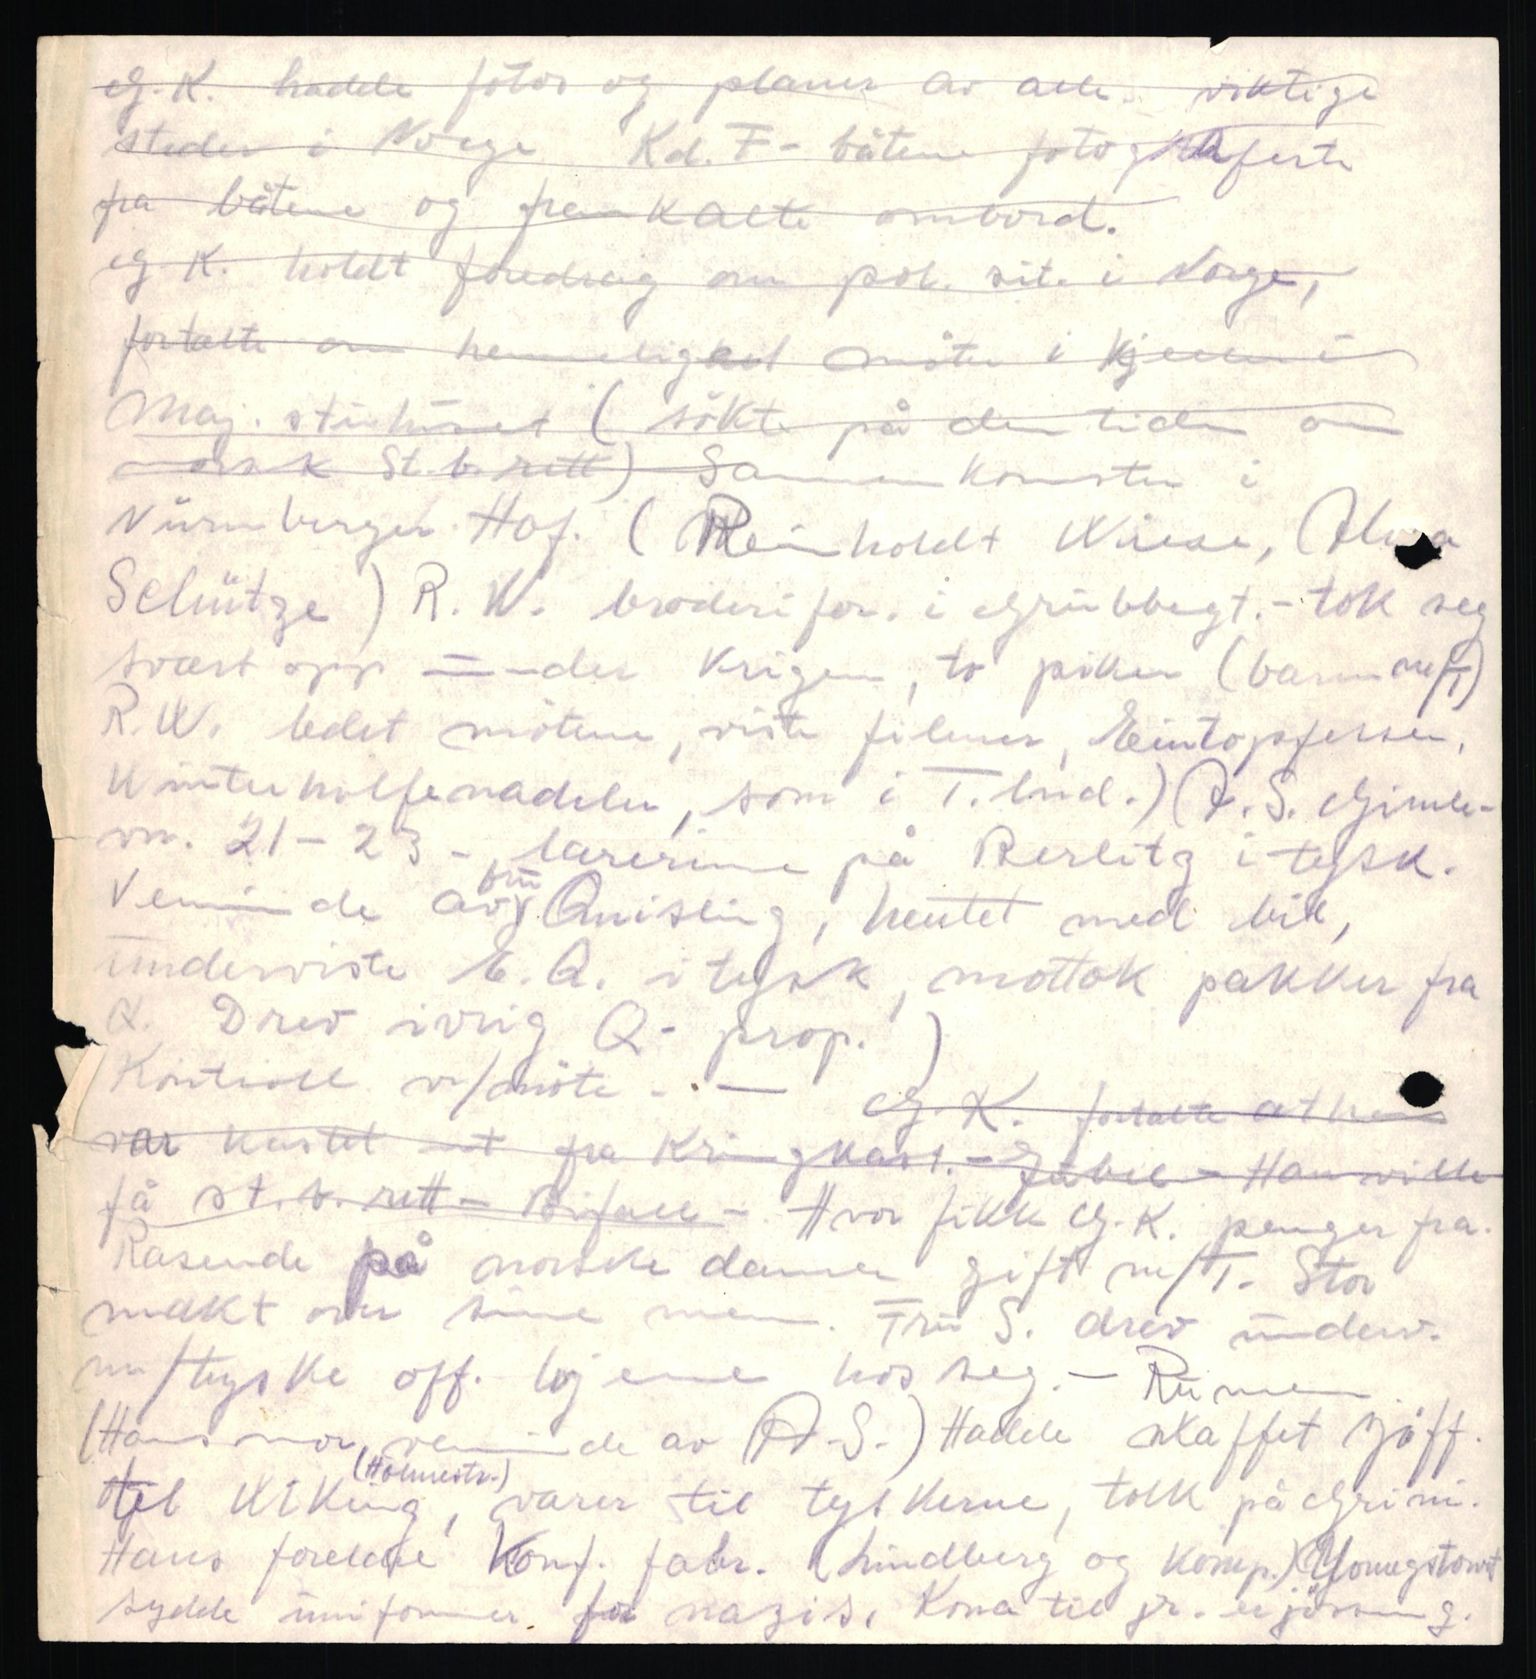 G.K. hadde fotos og planer av alle viktige
steder i Norge K.d.F-båtene fotograferte
fra båtene og fremkalte ombord.
G.K. holdt foredrag om pol. sit. i Norge,
fortalte om hemmelighet møter i kjelleren i
Maj. stuhuset (søkte på den tiden om
norsk St.b.rett) Sammenkomster i
Nürnberger Hof. (Reinholdt Wiese, Alma
Schütze) R.W. broderifor. i Grubbegt. - tok seg
svært opp under krigen, to piker (barn m/T)
R.W. ledet møtene, viste filmer, Eintopfessen,
Winterhilfenadeler, som i T.lnd.) (A.S. Gimle-
vn. 21-23 -, lærerinne på Berlitz i tysk.
Veninde av fru Quisling, hentet med bil,
underviste E.Q. i tysk, mottok pakker fra
Q. Drev ivrig Q- prop.)
Kontroll v/møte - — G.K. fortalte at han
var kastet ut fra Kringkast. - Jubel - Han ville
få st.b.rett - Bifall - Hvor fikk G.K. penger fra.
Rasende på norske damer gift m/T. Stor
makt over sine menn. Fru S. drev underv.
m/tyske off. hjemme hos seg. - Rümen
(Hans mor, veninde av A.S.) Hadde skaffet sjøff.
til Wiking, (Holmestr.) varer til tyskerne, tolk på Grini.
Hans foreldre Konf. fabr. (Lindberg og Komp.) Youngstorvet
sydde uniformer for nazis. Kona til jr. er jøssing.